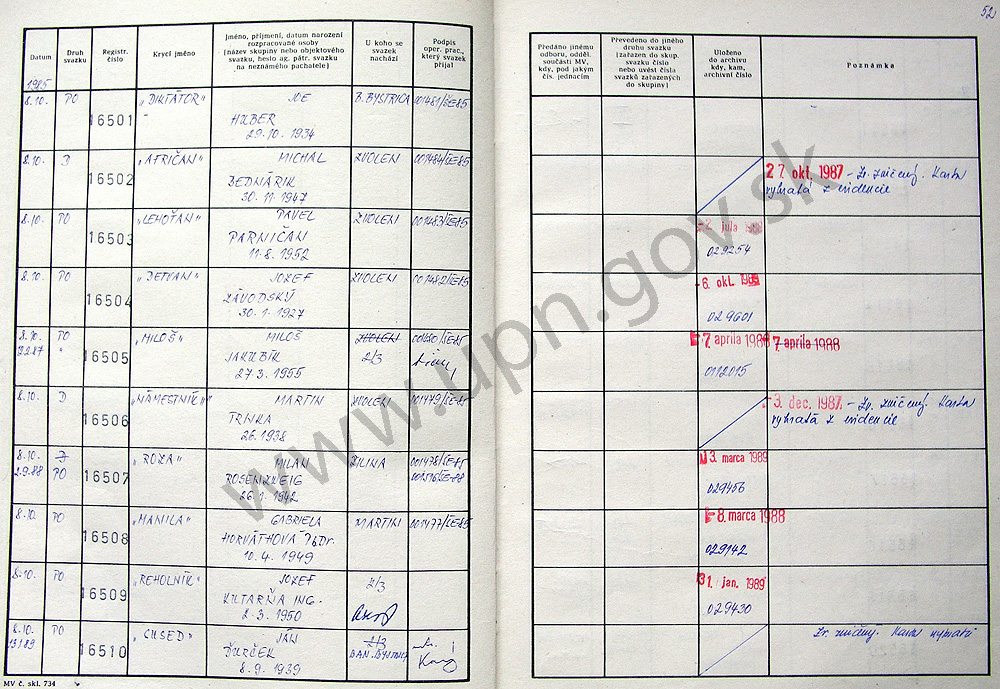 52
Datum
Druh svazku
Registr. číslo
Krycí jméno
Jméno, příjmení, datum narození rozpracované osoby (název skupiny nebo objektového svazku, heslo ag. pátr. svazku na neznámého pachatele)
U koho se svazek nachází
Podpis oper. prac., který svazek přijal
Předáno jinému odboru, odděl. součásti MV, kdy, pod jakým čís. jednacím
Převedeno do jiného druhu svazku (zařazen do skup. svazku číslo nebo uvést čísla svazků zařazených do skupiny)
Uloženo do archivu kdy, kam, archivní číslo
Poznámka
1985
8.10. PO 16501 „DIKTÁTOR" JOE B. BYSTRICA 001481/ČE-85
HUBER
29.10.1934
8.10. D 16502 „AFRIČAN" MICHAL ZVOLEN 001484/ČE-85
BEDNÁRIK
30.11.1947
27. okt. 1987 - Zv. zničený. Karta
vybratá z evidencie
8.10. PO 16503 „LEHOŤAN" PAVEL ZVOLEN 001483/ČE-85
PARNIČAN
11.8.1952
029254
8.10. PO 16504 „DETVAN" JOZEF ZVOLEN 001482/ČE-85
ZÁVODSKÝ
30.1.1927
6. okt. 1989
029601
8.10. PO 16505 „MILOŠ" MILOŠ ZVOLEN 001480/ČE-85
JAKUBÍK 2/3
27.3.1955
7. apríla 1988 7. apríla 1988
8.10. D 16506 „NÁMESTNÍK" MARTIN ZVOLEN 001479/ČE-85
TRNKA
2.6.1938
3. dec. 1987 - Zv. zničený. Karta
vybratá z evidencie
8.10. D 16507 „ROZA" MILAN ŽILINA 001478/ČE-85
2.9.88 PO ROSENZWEIG 001516/ČE-88
26.1.1942
3. marca 1989
029456
8.10. PO 16508 „MANILA" GABRIELA MARTIN 001477/ČE-85
HORVÁTHOVÁ PhDr.
10.4.1949
8. marca 1988
029142
8.10. PO 16509 „REHOLNÍK" JOZEF 2/3
KUTARŇA ING.
2.3.1950
31. jan. 1989
029430
8.10. PO 16510 „SUSED" JÁN 2/3
ĎURČEK BAN. BYSTRICA
8.9.1939
Zv. zničený. Karta vybratá
MV č. skl. 734
www.upn.gov.sk